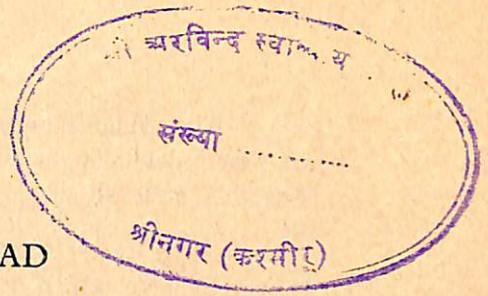 अरविन्द
संख्या ..........
श्रीनगर (कश्मीर)
AD